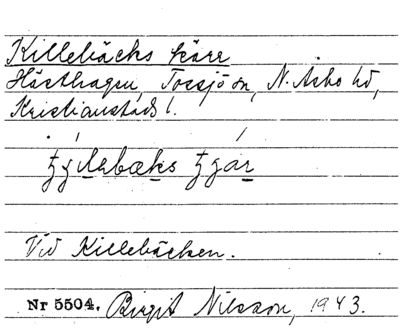 Killebäcks kärr
Hästhagen, Torsjö sn, N. Åsbo hd,
Kristianstads l.
Vid Killebäcken.
Nr 5504. Birgit Nilsson, 1943.